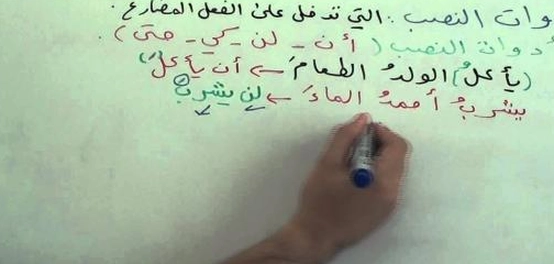 وات النصب : التي تدخل على الفعل المضارع .
دوات النصب ( أن - لن - كي - حتى ) .
( يأكلُ ) الولدُ الطعامَ ← أن يأكلَ
يشربُ أحمدُ الماءَ ← لن يشربَ